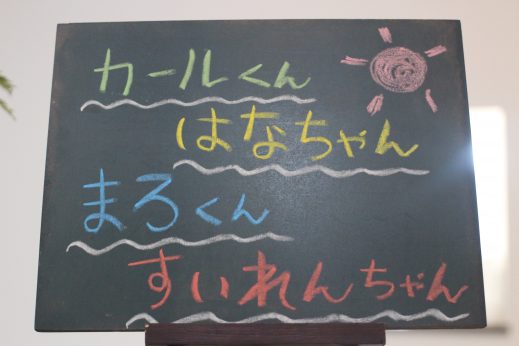 カールくん
はなちゃん
まろくん
すいれんちゃん